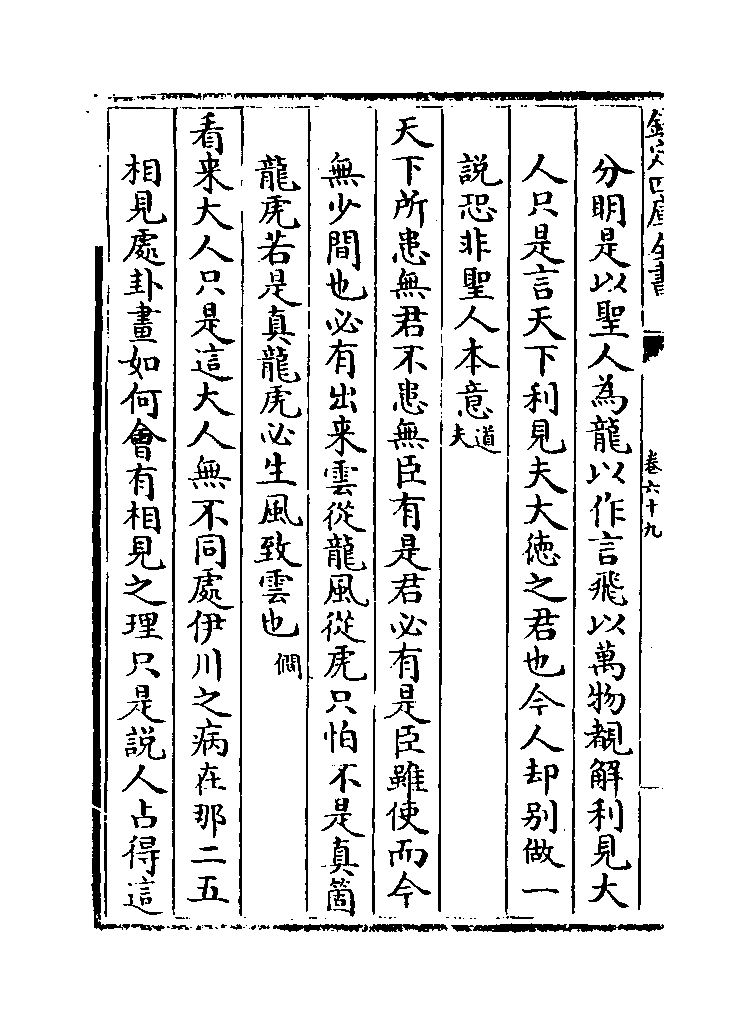 欽定四庫全書
卷六十九
分明是以聖人為龍以作言飛以萬物覩解利見大
人只是言天下利見夫大徳之君也今人却别做一
説恐非聖人本意道夫
天下所患無君不患無臣有是君必有是臣雖使而今
無少間也必有出来雲從龍風從虎只怕不是真箇
龍虎若是真龍虎必生風致雲也僩
看来大人只是這大人無不同處伊川之病在那二五
相見處卦畫如何會有相見之理只是説人占得這